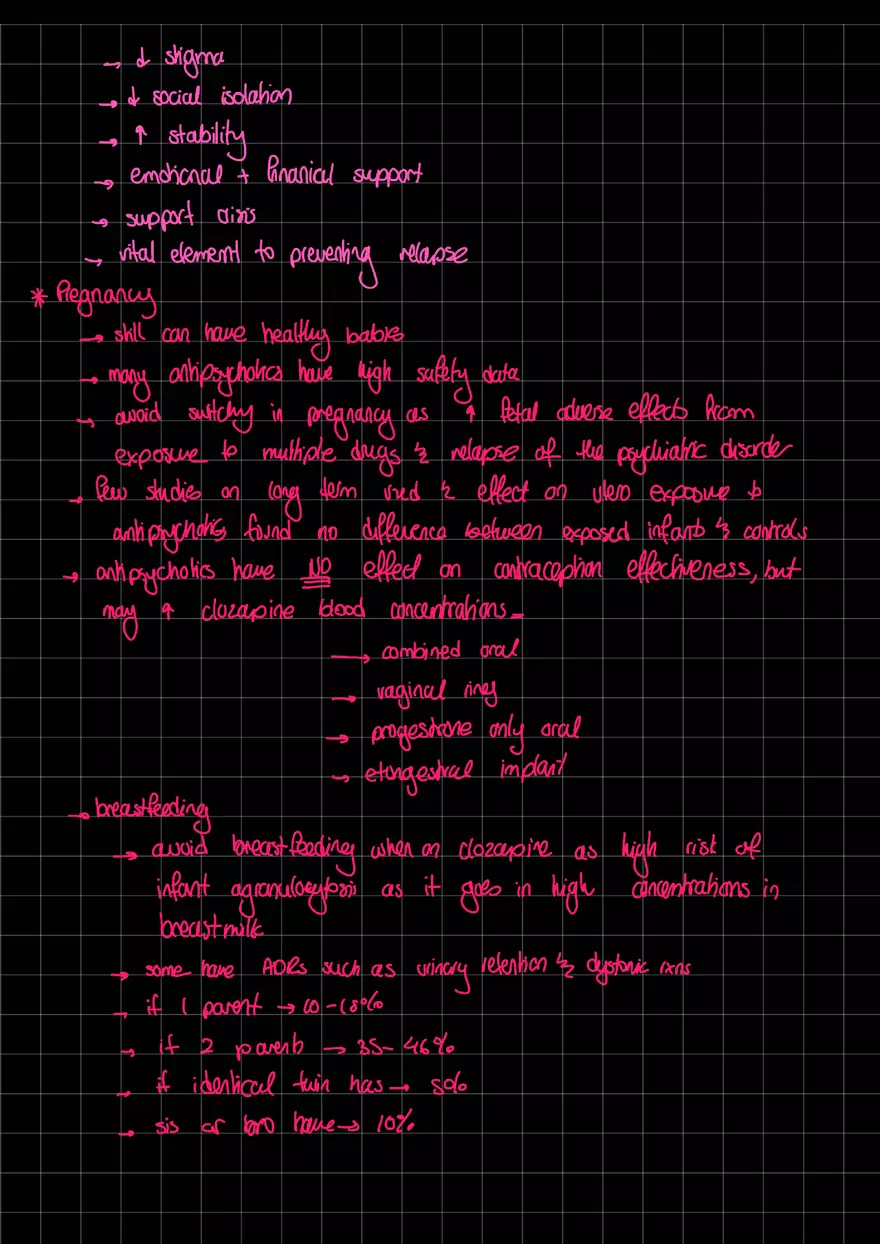 → ↓ stigma
→ ↓ social isolation
→ ↑ stability
→ emotional + financial support
→ support crisis
→ vital element to preventing relapse
* Pregnancy
→ still can have healthy babies
→ many antipsychotics have high safety data
→ avoid switchy in pregnancy as ↑ fetal adverse effects from
exposure to multiple drugs & relapse of the psychiatric disorder
→ few studies on long term used & effect on utero exposure to
antipsychotics found no difference between exposed infants & controls
→ antipsychotics have NO effect on contraception effectiveness, but
may ↑ clozapine blood concentrations -
→ combined oral
→ vaginal ring
→ progesterone only oral
→ etongestral implant
→ breastfeeding
→ avoid breastfeeding when on clozapine as high risk of
infant agranulocytosis as it goes in high concentrations in
breastmilk
→ some have ADRs such as urinary retention & dystonic rxns
→ if 1 parent → 10-18%
→ if 2 parents → 35-46%
→ if identical twin has → 50%
→ sis or bro have → 10%